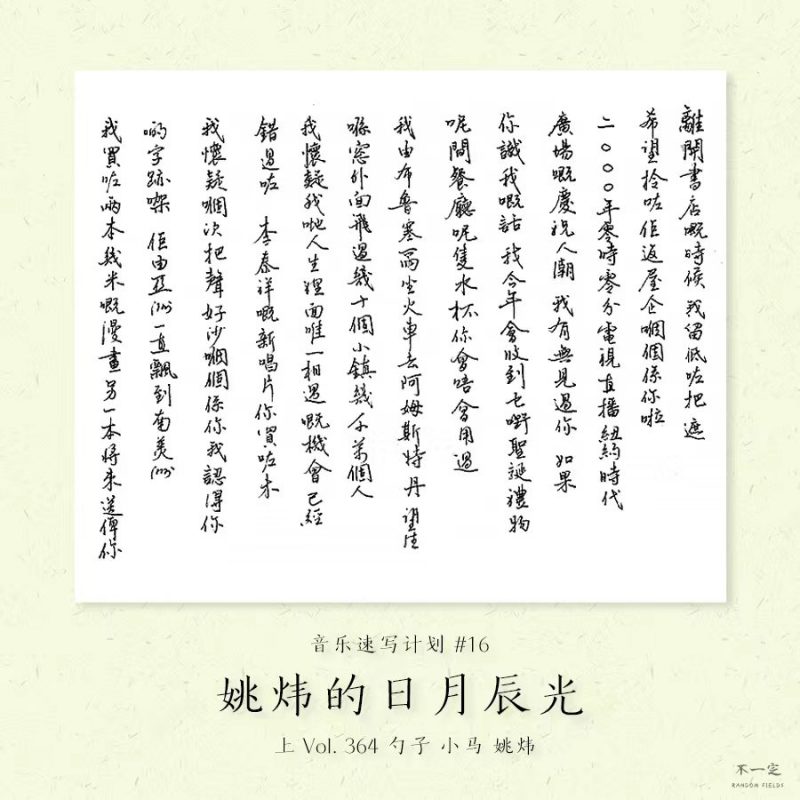 離開書店嘅時候 我留低咗把遮
希望拎咗佢返屋企嗰個係你啦
二〇〇〇年零時零分電視直播紐約時代
廣場嘅慶祝人潮 我有無見過你 如果
你識我嘅話 我今年會收到乜嘢聖誕禮物
呢間餐廳呢隻水杯你會唔會用過
我由布魯塞爾坐火車去阿姆斯特丹 望住
喺窓外面飛過幾十個小鎮幾千萬個人
我懷疑我哋人生裡面唯一相遇嘅機會已經
錯過咗 李泰祥嘅新唱片你買咗未
我懷疑嗰次把聲好沙嗰個係你我認得你
啲字跡㗎 佢由亞洲一直飄到南美洲
我買咗兩本幾米嘅漫畫另一本將來送俾你
音乐速写计划 #16
姚炜的日月辰光
上 Vol. 364 勺子 小马 姚炜
不一定
RANDOM FIELDS